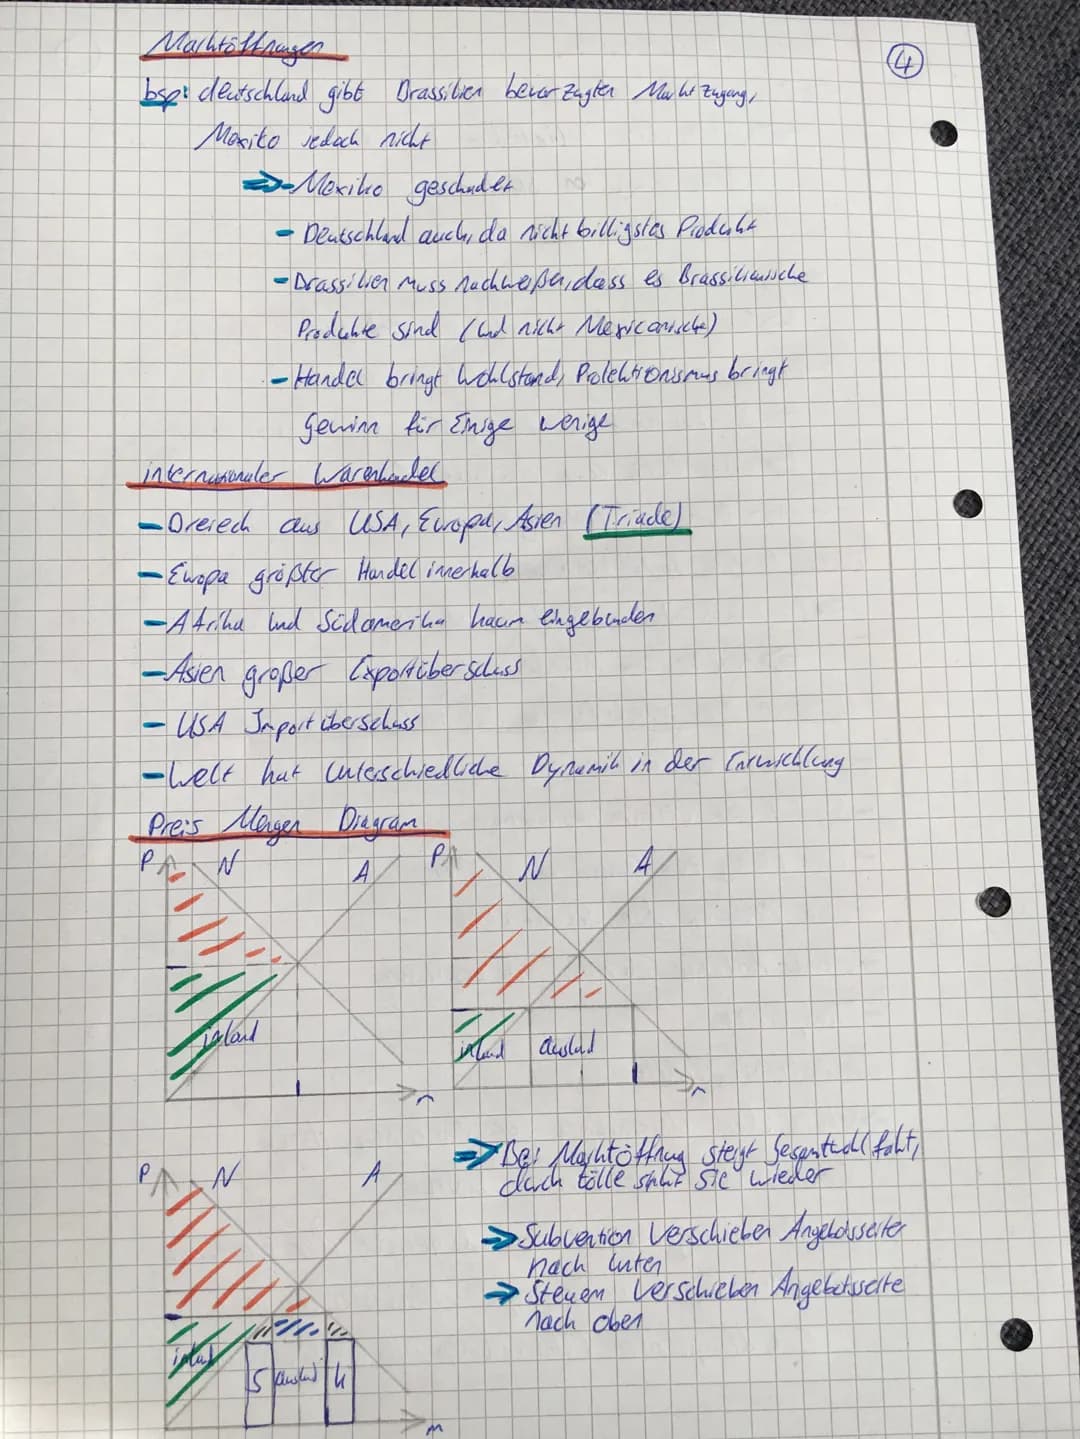 Marktöffnungen
4
bsp: deutschland gibt Brassilien bevorzugten Marktzugang,
Mexiko jedoch nicht
⇒ - Mexiko geschadet
- Deutschland auch, da nicht billigstes Produkt
- Brassilien muss nachweißen, dass es Brassilianische
Produkte sind (und nicht Mexicanische)
- Handel bringt Wohlstand, Protektionismus bringt
Gewinn für Einige wenige
internationaler Warenhandel
- Dreieck aus USA, Europa, Asien (Triade)
- Europa größter Handel innerhalb
- Afrika und Südamerika kaum eingebunden
- Asien großer Exportüberschuss
- USA Importüberschuss
- Welt hat unterschiedliche Dynamik in der Entwicklung
Preis Mengen Diagram
P N A
inland
m
P N A
inland ausland
m
P N A
inland 5 ausland 4
m
⇒ Bei Marktöffnug steigt Gesamtwohlfahrt,
durch Zölle sinkt sie wieder
⇒ Subvention verschieben Angebotsseite
nach unten
→ Steuern verschieben Angebotsseite
nach oben